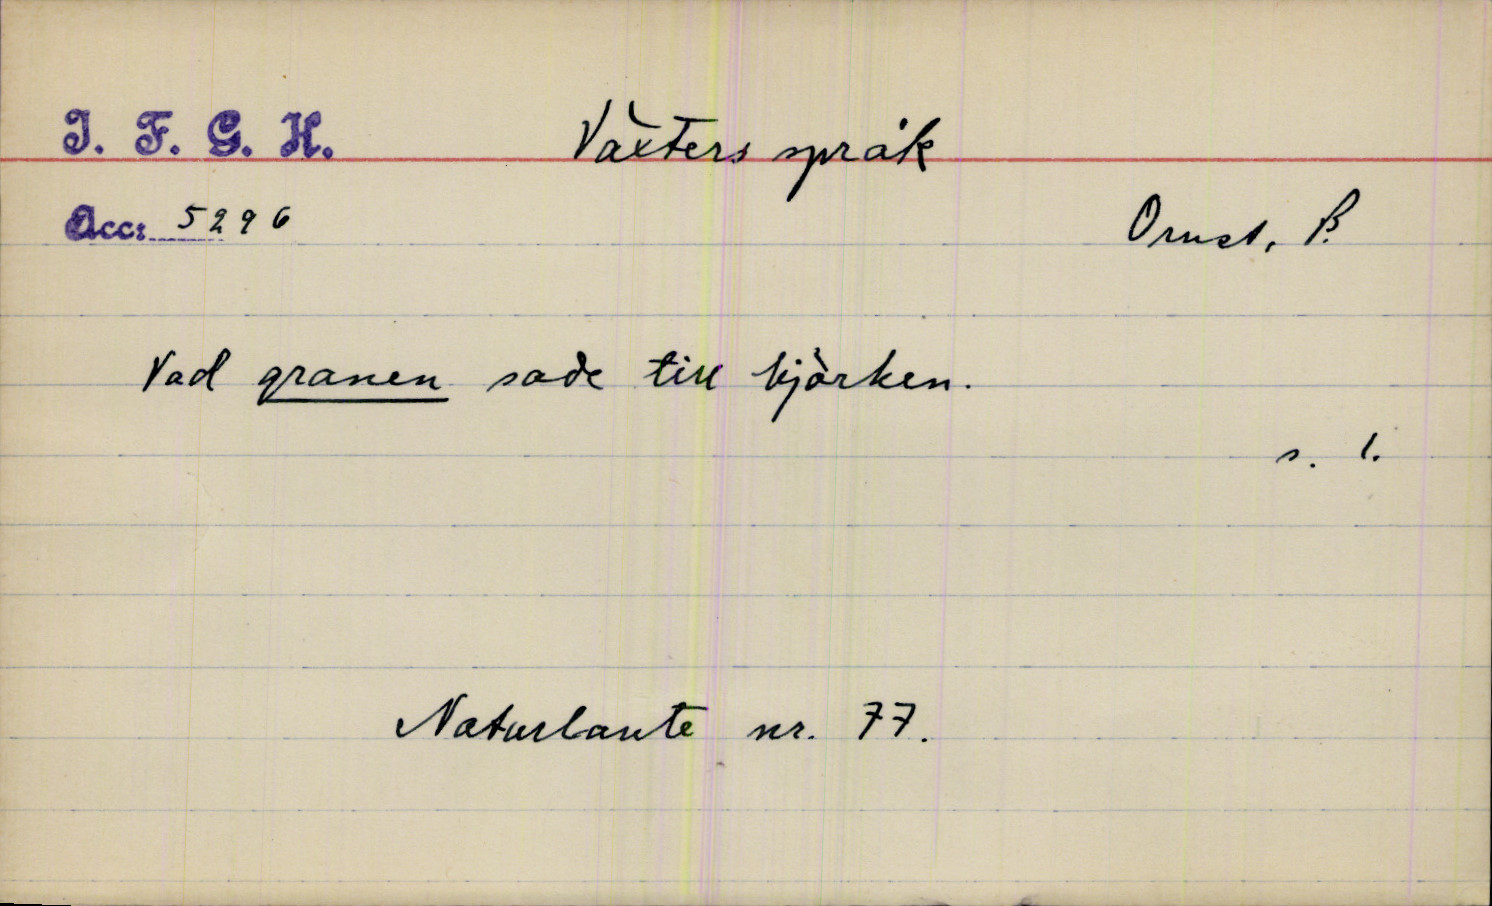 I. F. G. H.
Växters språk
Acc: 5296
Orust, B.
Vad granen sade till björken.
s. 1.
Naturlaute nr. 77.